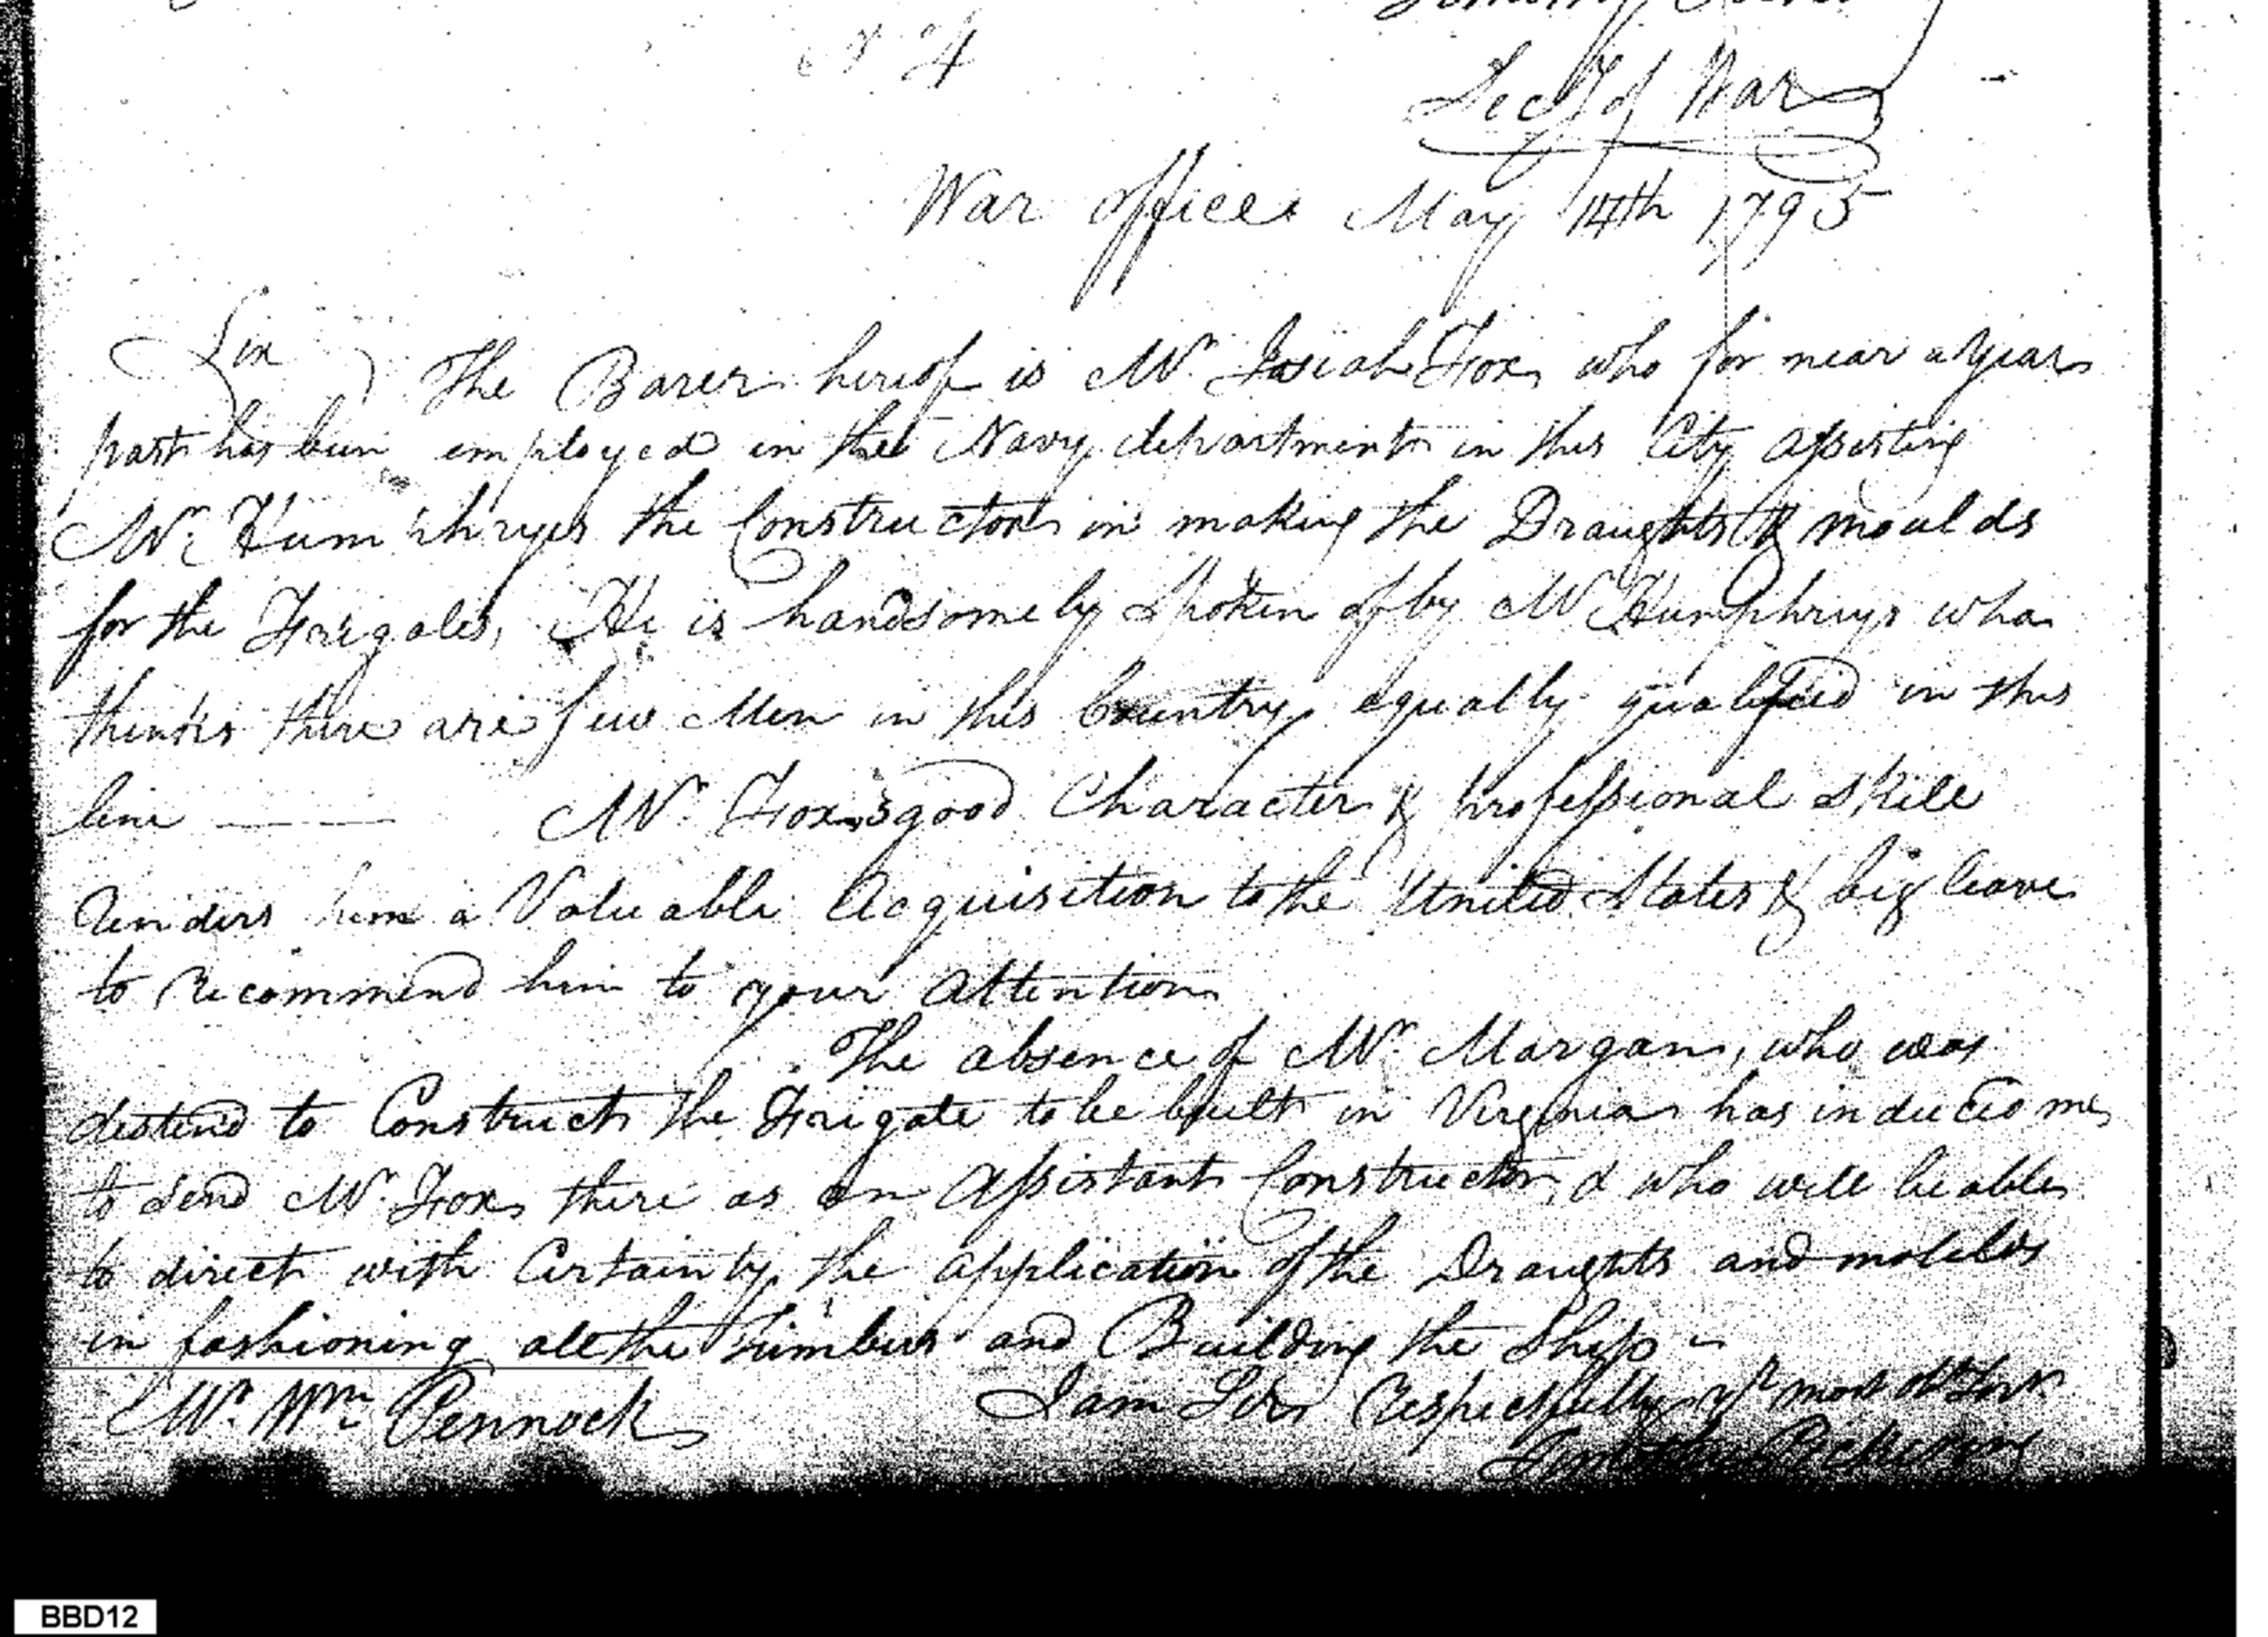 No 4
Secy of War
War office May 14th 1795
Sir
The Barer hereof is Mr Josiah Fox who for near a year
past has been employed in the Navy department in this City assisting
Mr Humphreys the Constructor in making the Draughts & moulds
for the Frigates, He is handsomely spoken of by Mr Humphreys who
thinks there are few Men in this Country equally qualified in this
line — Mr Fox's good Character & professional Skill
renders him a Valuable Acquisition to the United States & beg leave
to recommend him to your Attention
The absence of Mr Morgan, who was
destend to Construct the Frigate to be built in Virginia has induced me
to send Mr Fox there as an Assistant Constructor, & who will be able
to direct with Certainty the application of the Draughts and moulds
in fashioning all the Timbers and Building the Ship
I am Sir Respectfully yr most
Mr Wm Pennock
Timothy Pickering
BBD12